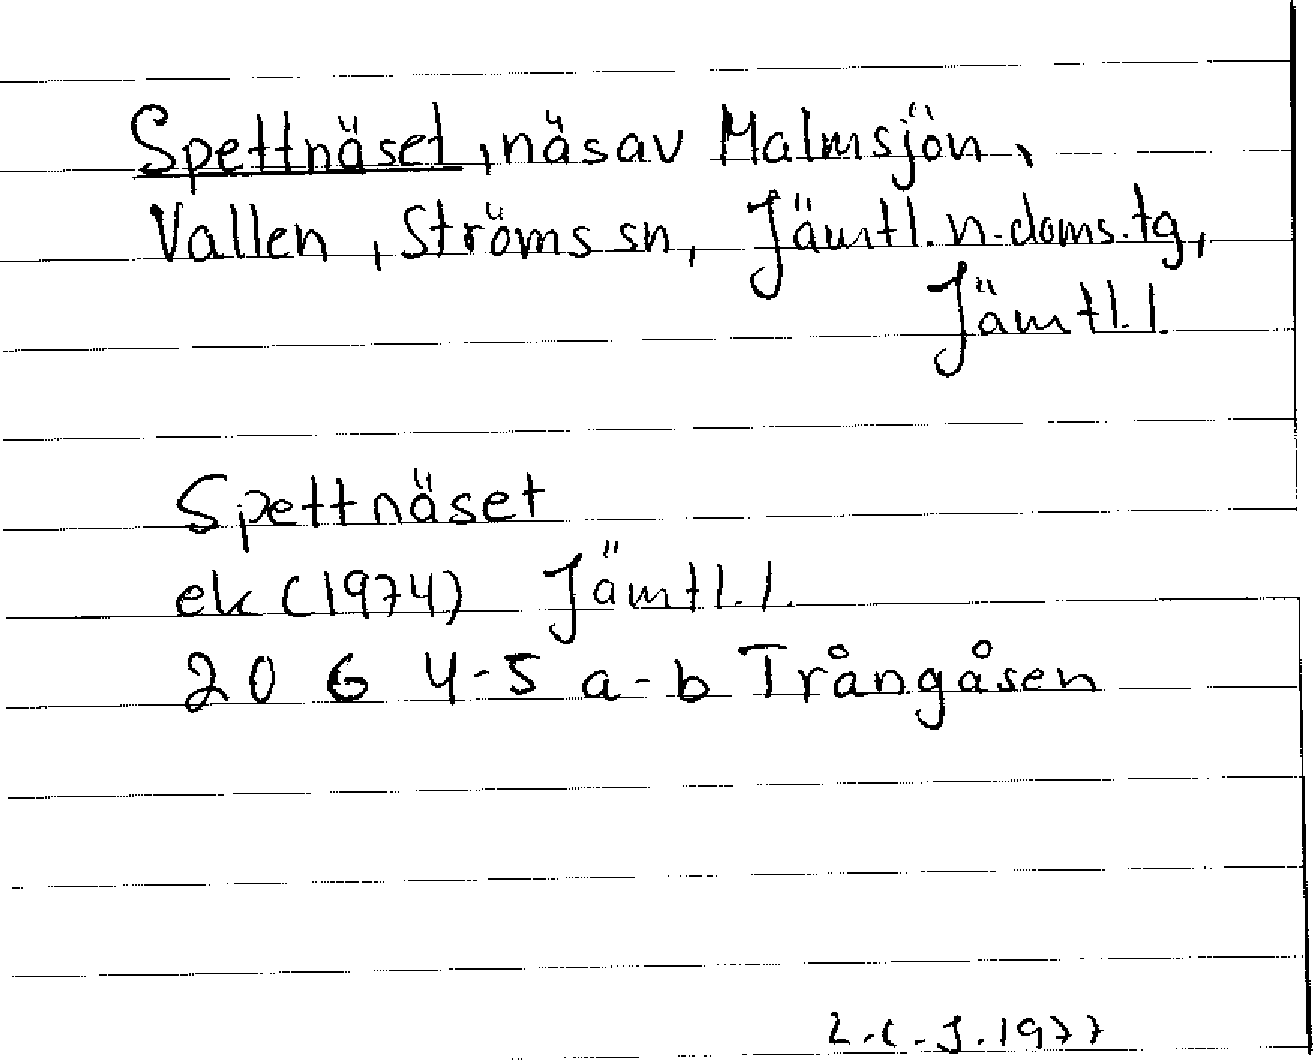 Spettnäset, näs av Malmsjön,
Vallen, Ströms sn, Jämtl. n. doms. tg,
Jämtl. l.
Spettnäset
ek (1974) Jämtl. l.
20 G 4-5 a-b Trångåsen
L.C.J. 1977